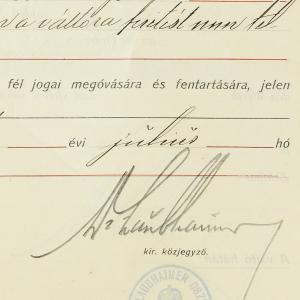 a váltóra fizetést nem tel-
fél jogai megóvására és fentartására, jelen
évi július hó
Dr Laubhaimer
kir. közjegyző.
LAUBHAIMER